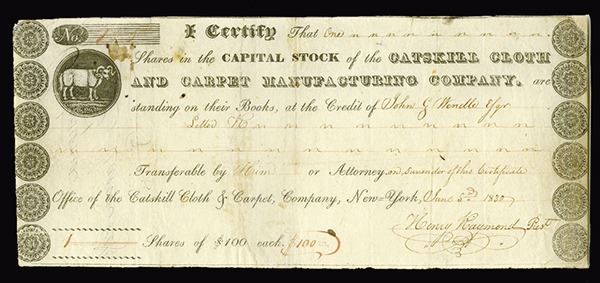 No.
I Certify That One
Shares in the CAPITAL STOCK of the CATSKILL CLOTH
AND CARPET MANUFACTURING COMPANY. are
standing on their Books, at the Credit of John G Wendle Esqr
Letter
Transferable by Him or Attorney on Surrender of this Certificate
Office of the Catskill Cloth & Carpet, Company, New=York, June
Henry Raymond Prest
1 Shares of $100 each. $100